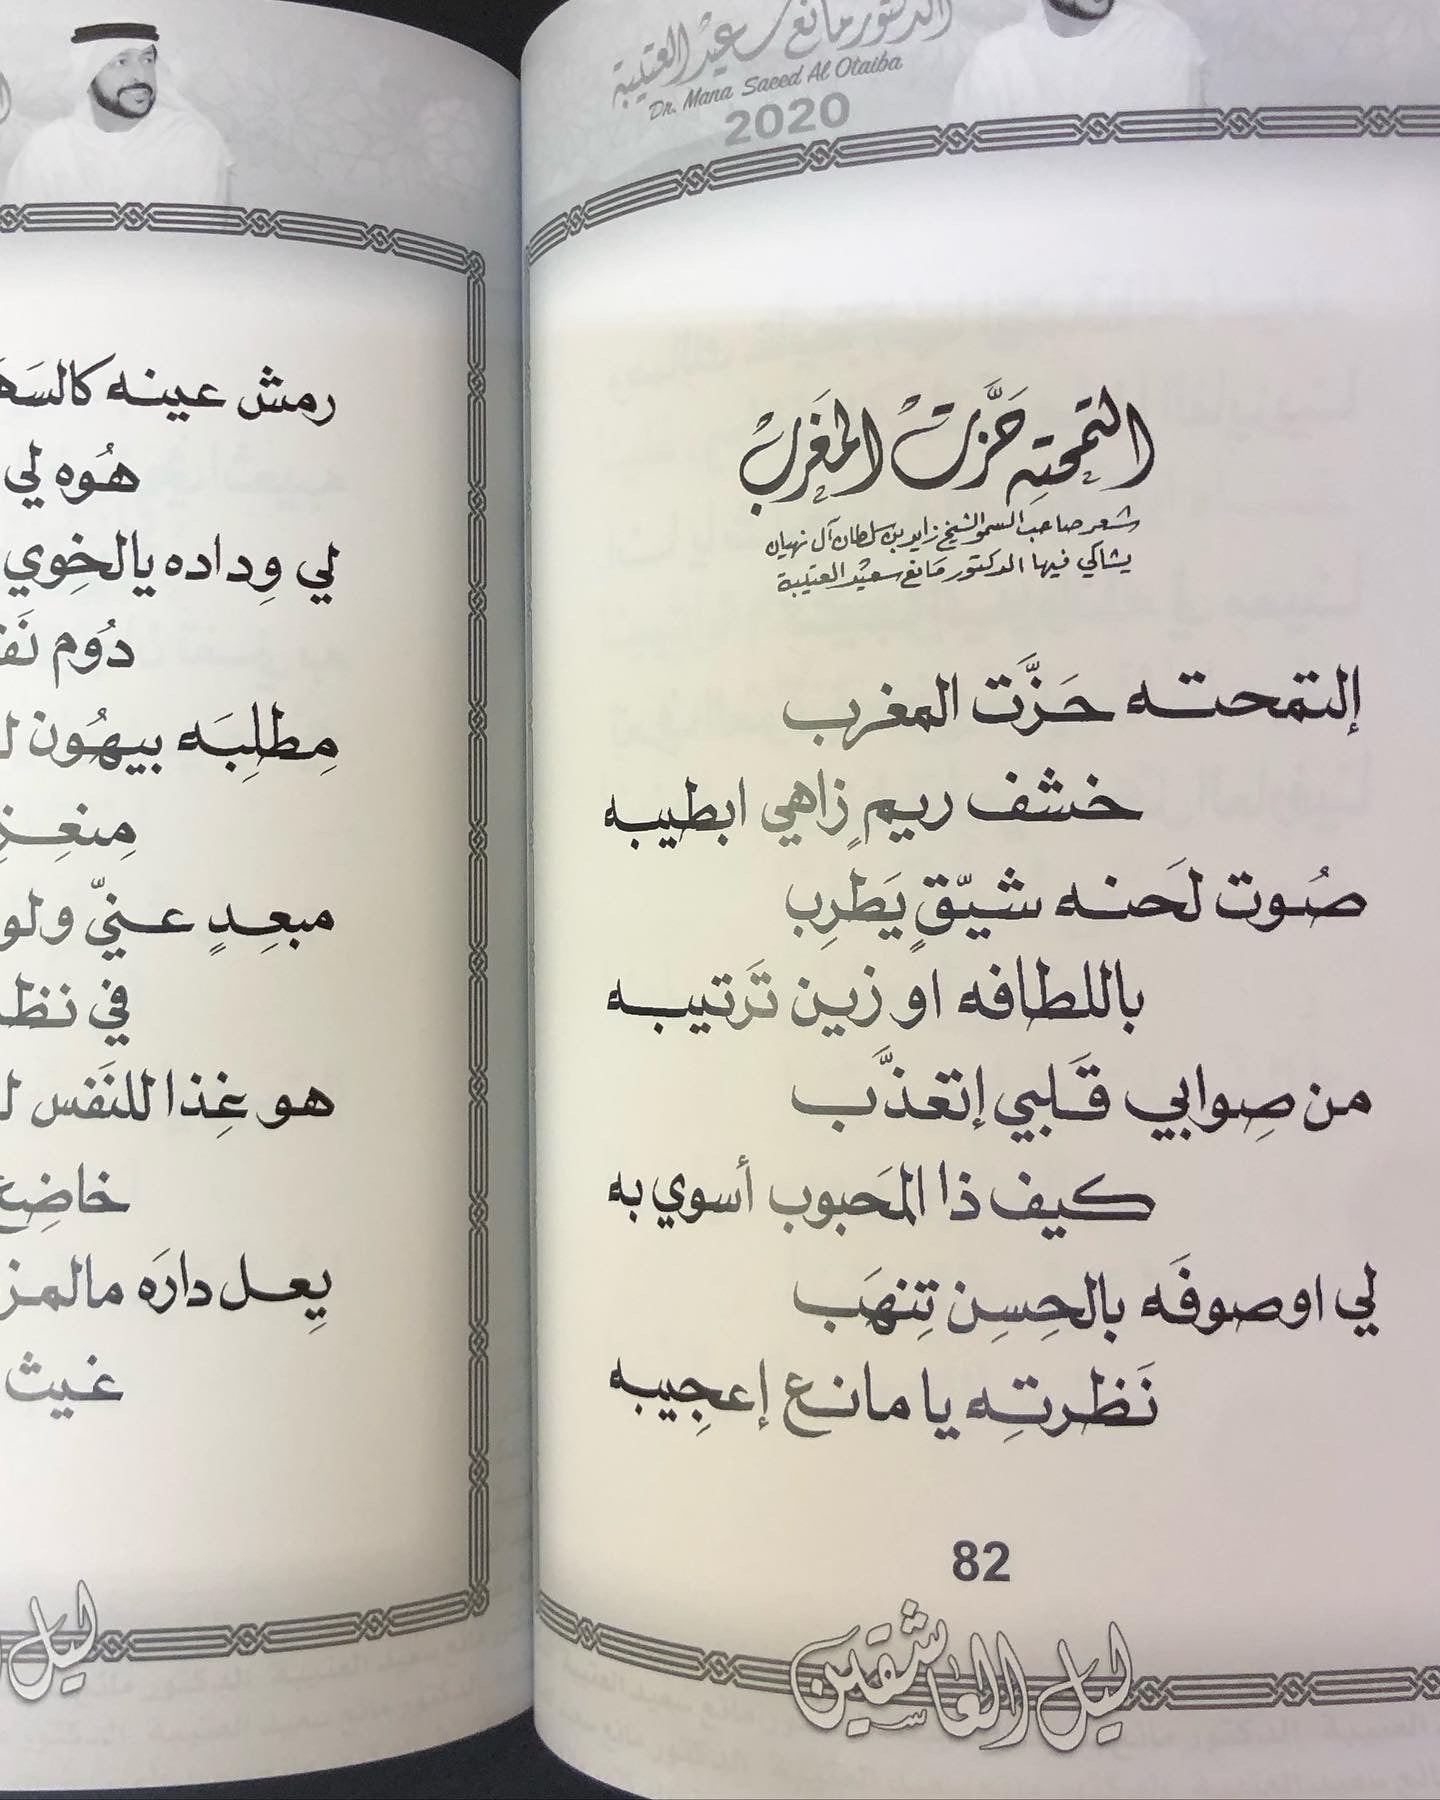 الدكتور مانع سعيد العتيبة
Dr. Mana Saeed Al Otaiba
2020
التمحتِه حَزَّت المغَرب
شعر صاحب السمو الشيخ زايد بن سلطان آل نهيان
يشاكي فيها الدكتور مانع سعيد العتيبة
إلتمحته حَزَّت المغرب
خشف ريمٍ زاهي ابطيبه
صُوت لَحنه شيّقٍ يَطرِب
باللطافه او زين تَرتيبه
من صِوابي قَلبي إتعذَّب
كيف ذا المَحبوب أسوي به
لي اوصوفَه بالحِسِن تِنهَب
نَظرتِه يا مانع إعجِيبه
82
ليل العاشقين
رمش عينه
هُوه لي
لي وِداده يالخِوي
دُوم
مِطلِبَه بيهُون
مبعِدٍ عنيّ ولو
في
هو غِذا للنَفس
خاضِع
يِعل دارَه
غيث
ليل